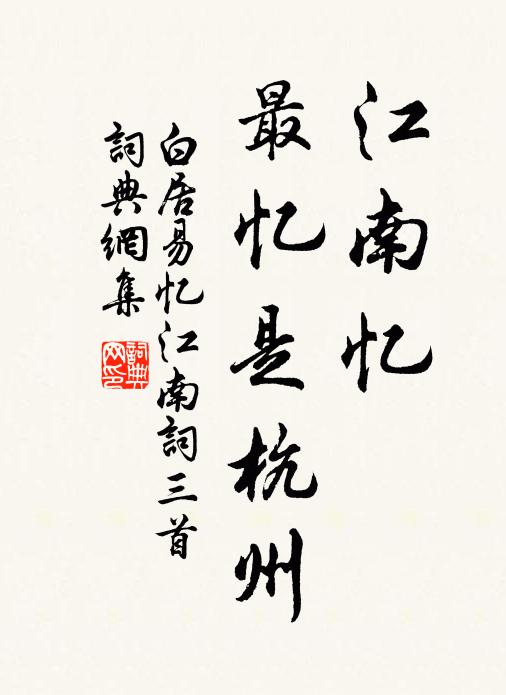 江南忆
最忆是杭州
白居易忆江南詞三首
詞典網集
詞典网印